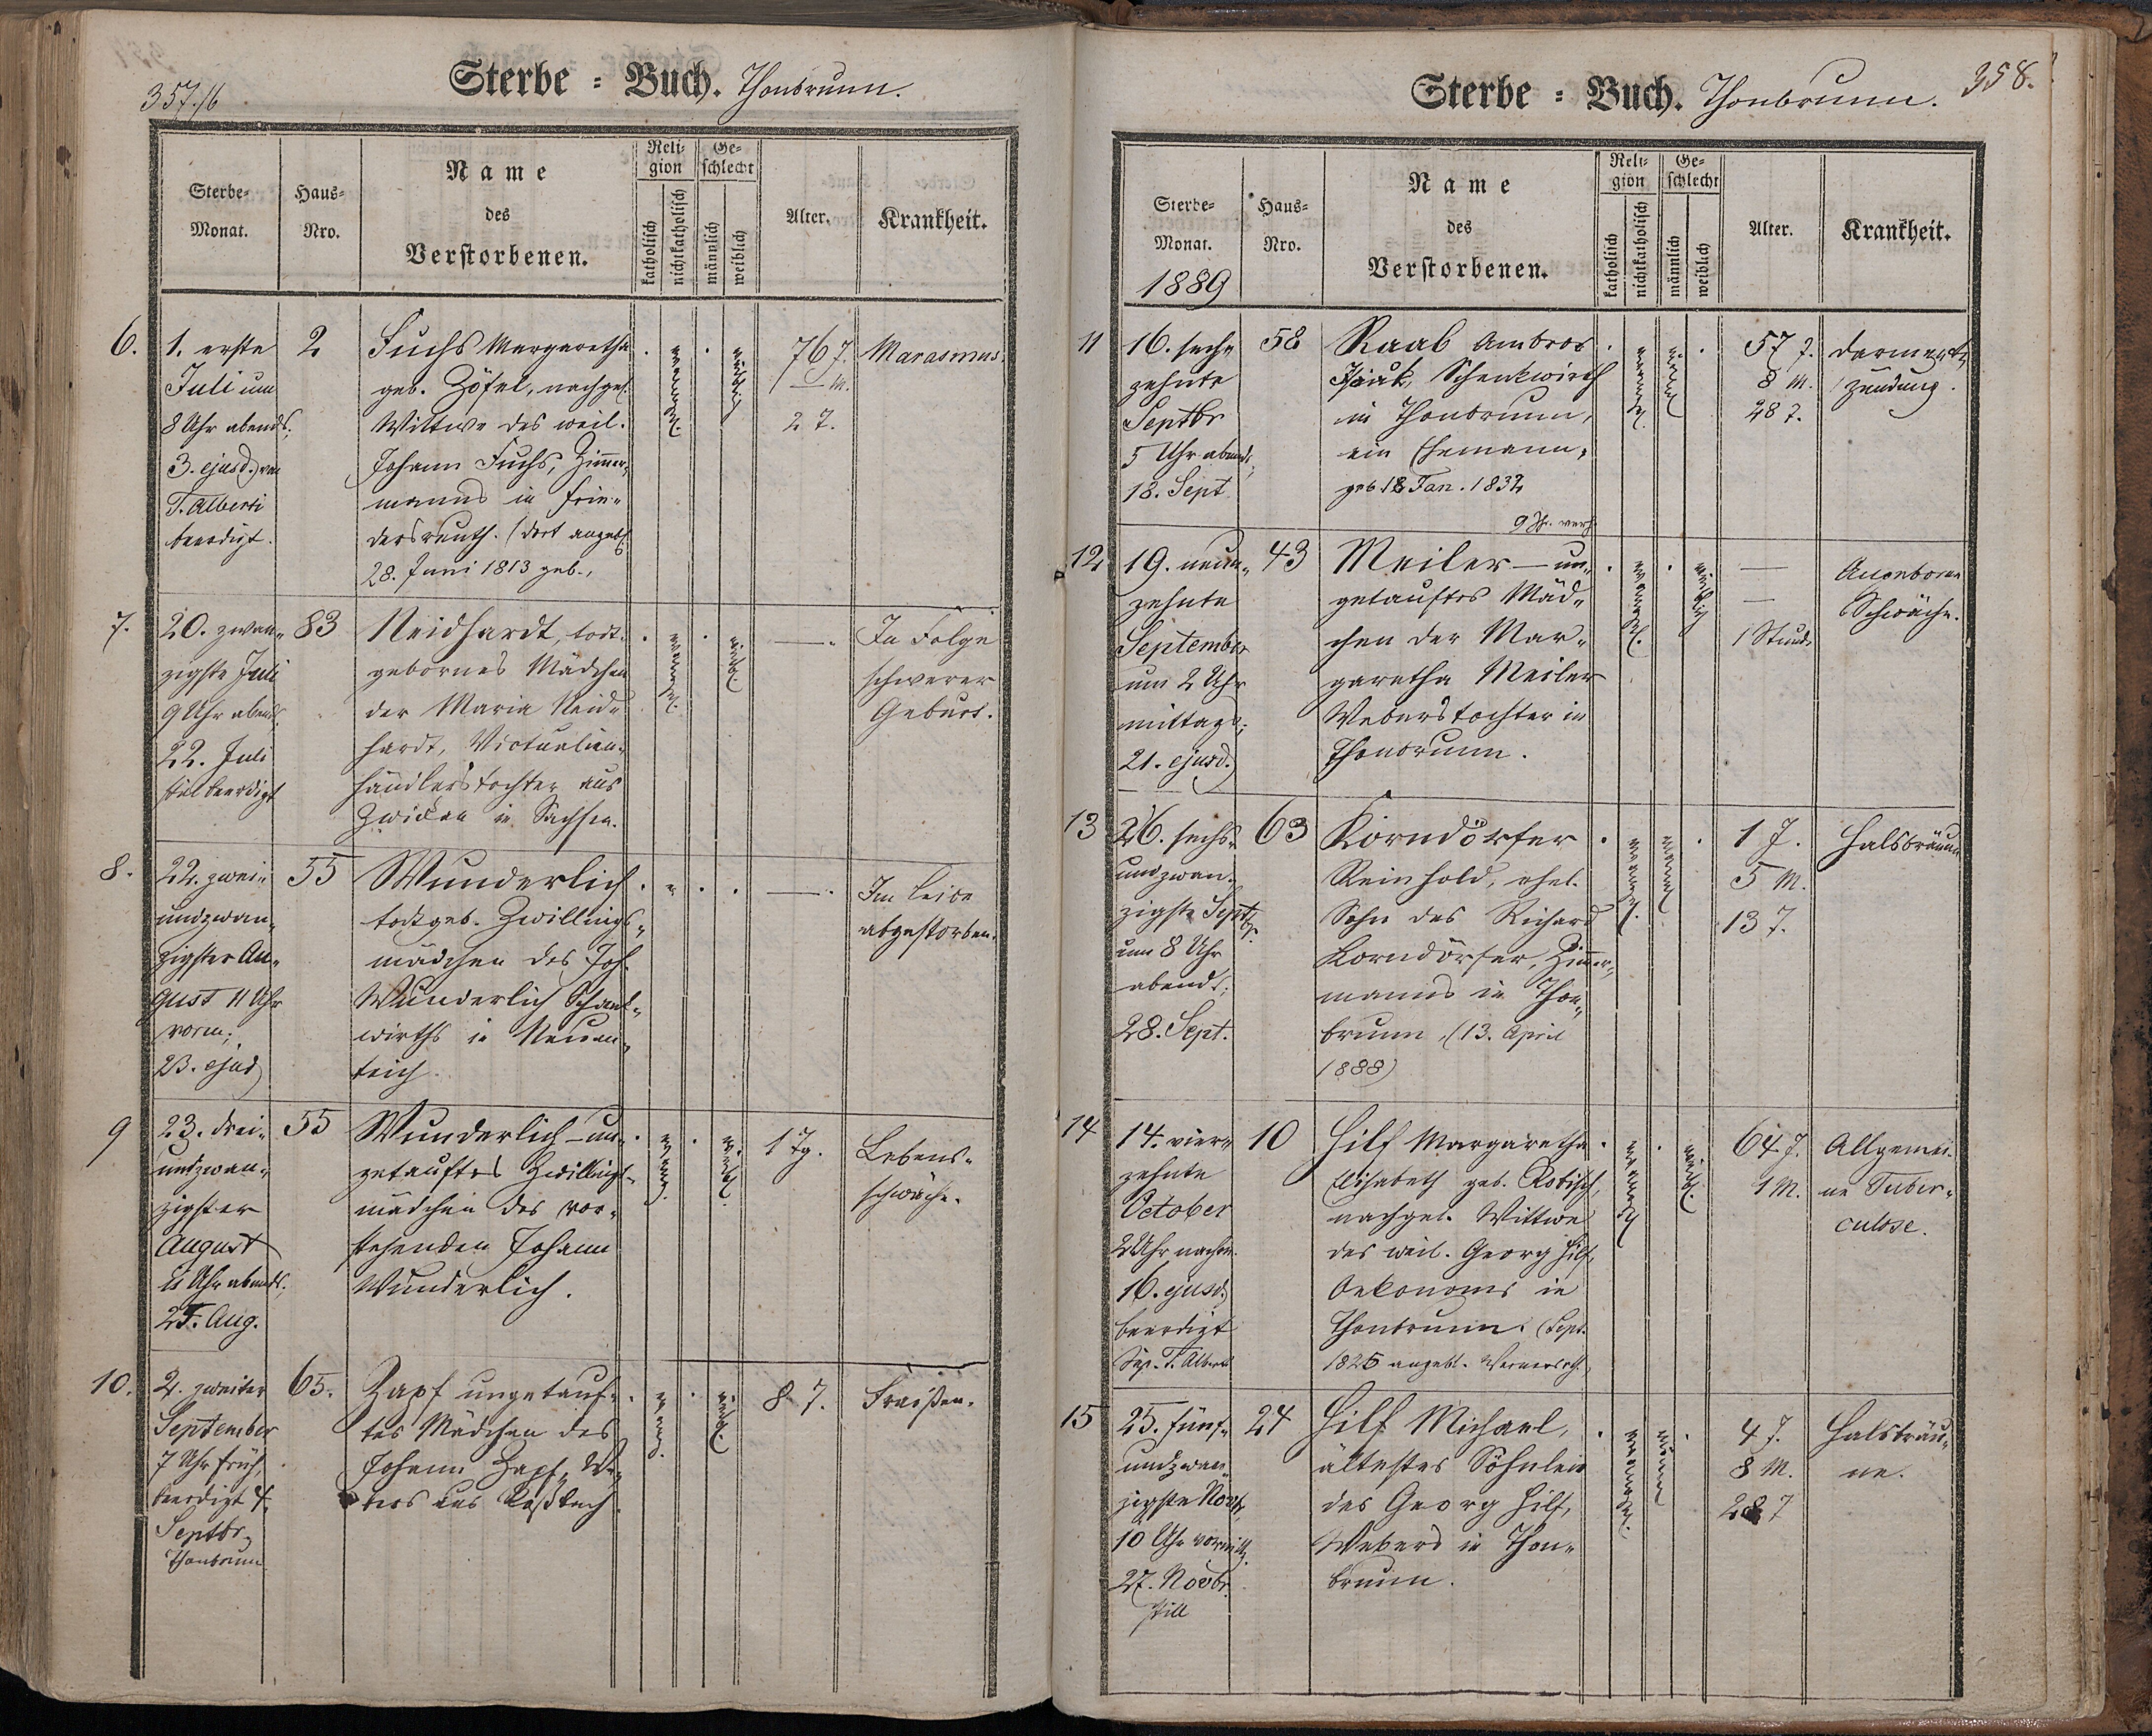 357./b
Sterbe = Buch. Thonbrunn.
Sterbe- Monat.
Haus- Nro.
Name des Verstorbenen.
Religion
katholisch
nichtkatholisch
Geschlecht
männlich
weiblich
Alter.
Krankheit.
6.
1. erste
Juli um
8 Uhr abends;
3. ejusd. von
T. Alberti
beerdigt.
2
Fuchs Margaretha
geb. Zöfel, nachgel.
Wittwe des weil.
Johann Fuchs, Zimmer-
manns in Frie-
dersreuth. (dort angebl.
28. Juni 1813 geb.,
76 J.
— M.
2 T.
Marasmus.
7.
20. zwan-
zigste Juli
9 Uhr abends,
22. Juli
still beerdigt
83
Neidhardt, todt-
gebornes Mädchen
der Maria Neid-
hardt, Victualien-
händlerstochter aus
Zwickau in Sachsen.
weibl.
—.
In Folge
schwerer
Geburt.
8.
22. zwei-
undzwan-
zigster Au-
gust 11 Uhr
vorm;
23. ejusd
55
Wunderlich
todtgeb. Zwillings-
mädchen des Joh.
Wunderlich Schank-
wirths in Neuen-
teich.
—.
Im Leibe
abgestorben.
9
23. drei-
undzwan-
zigster
August
11 Uhr abends;
25. Aug.
55
Wunderlich – un-
getauftes Zwillings-
mädchen des vor-
stehenden Johann
Wunderlich.
weibl.
1 Tg.
Lebens-
schwäche.
10.
2. zweiter
September
7 Uhr früh,
beerdigt 4.
Septbr.
Thonbrunn
65.
Zapf ungetauf-
tes Mädchen des
Johann Zapf, We-
bers aus Roßbach.
weibl.
8 T.
Fraißen.
358.
Sterbe = Buch. Thonbrunn.
Sterbe- Monat.
1889
Haus- Nro.
Name des Verstorbenen.
Religion
katholisch
nichtkatholisch
Geschlecht
männlich
weiblich
Alter.
Krankheit.
11
16. sech-
zehnte
Septbr
5 Uhr abends,
18. Sept
58
Raab Ambros
Schenkwirth
in Thonbrunn,
ein Ehemann,
geb 18 Jan. 1832
57 J.
8 M.
28 T.
Darment-
zündung.
12
19. neun-
zehnte
September
um 2 Uhr
mittags;
21. ejusd.
43
Meiler – un-
getauftes Mäd-
chen der Mar-
garetha Meiler
Weberstochter in
Thonbrunn.
weiblich
—
—
1 Stunde
Angeborne
Schwäche.
13
26. sechs-
undzwan-
zigste Septbr.
um 8 Uhr
abends;
28. Sept.
63
Korndörfer
Reinhold, ehel.
Sohn des Richard
Korndörfer, Zimmer-
manns in Thon-
brunn, (13. April
1888)
1 J.
5 M.
13 T.
Halsbräune
14
14. vier-
zehnte
October
2 Uhr nachm.
16. ejusd.
beerdigt
T. Alberti
10
Hilf Margaretha
Elisabeth geb. Robisch,
nachgel. Wittwe
des weil. Georg Hilf,
Oekonoms in
Thonbrunn. (Sept.
1825 angebl. Wernersreuth,
weibl.
64 J.
1 M.
Allgemei-
ne Tuber-
culose.
15
25. fünf-
undzwan-
zigste Novb.
10 Uhr vormittg.
27. Novbr.
still
24
Hilf Michael,
ältestes Söhnlein
des Georg Hilf,
Webers in Thon-
brunn.
4 J.
8 M.
28 T
Halsbräu-
ne.